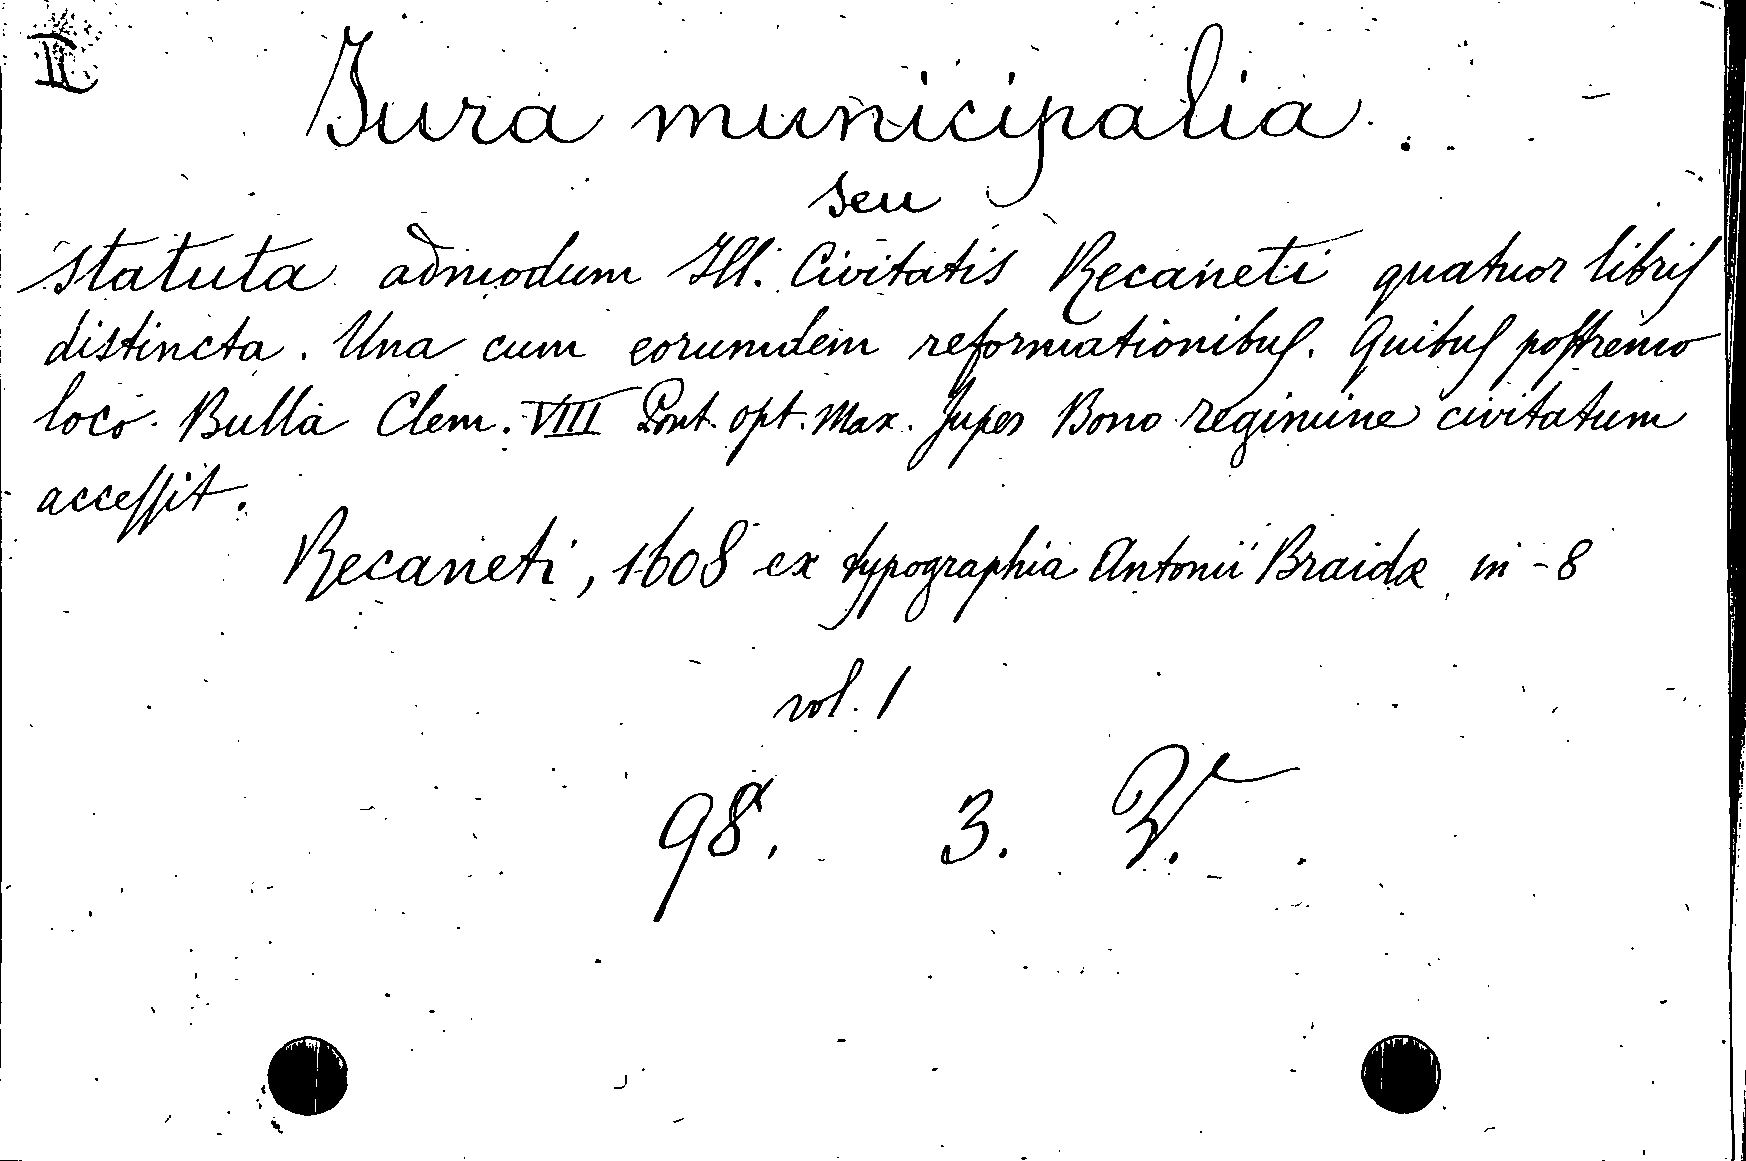 II
Jura municipalia.
seu
statuta admodum Ill. Civitatis Recaneti quatuor libris
distincta. Una cum eorumdem reformationibus. Quibus postremo
loco. Bulla Clem. VIII Pont. Opt. Max. super Bono regimine civitatum
accessit.
Recaneti, 1608 ex typographia Antonii Braidæ in-8
vol. 1
98. 3. V.